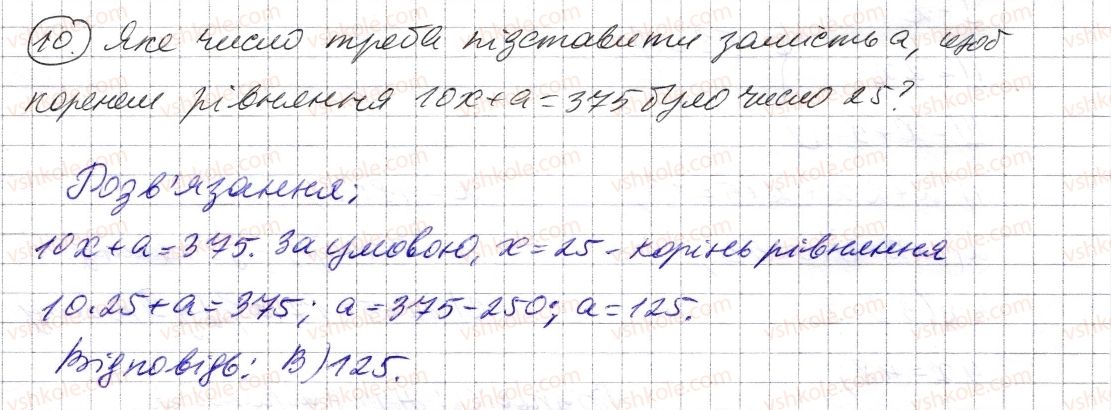 10. Яке число треба підставити замість a, щоб
коренем рівняння 10x+a=375 було число 25?
Розв'язання;
10x+a=375. За умовою, x=25 - корінь рівняння
10·25+a=375; a=375-250; a=125.
Відповідь: В) 125.